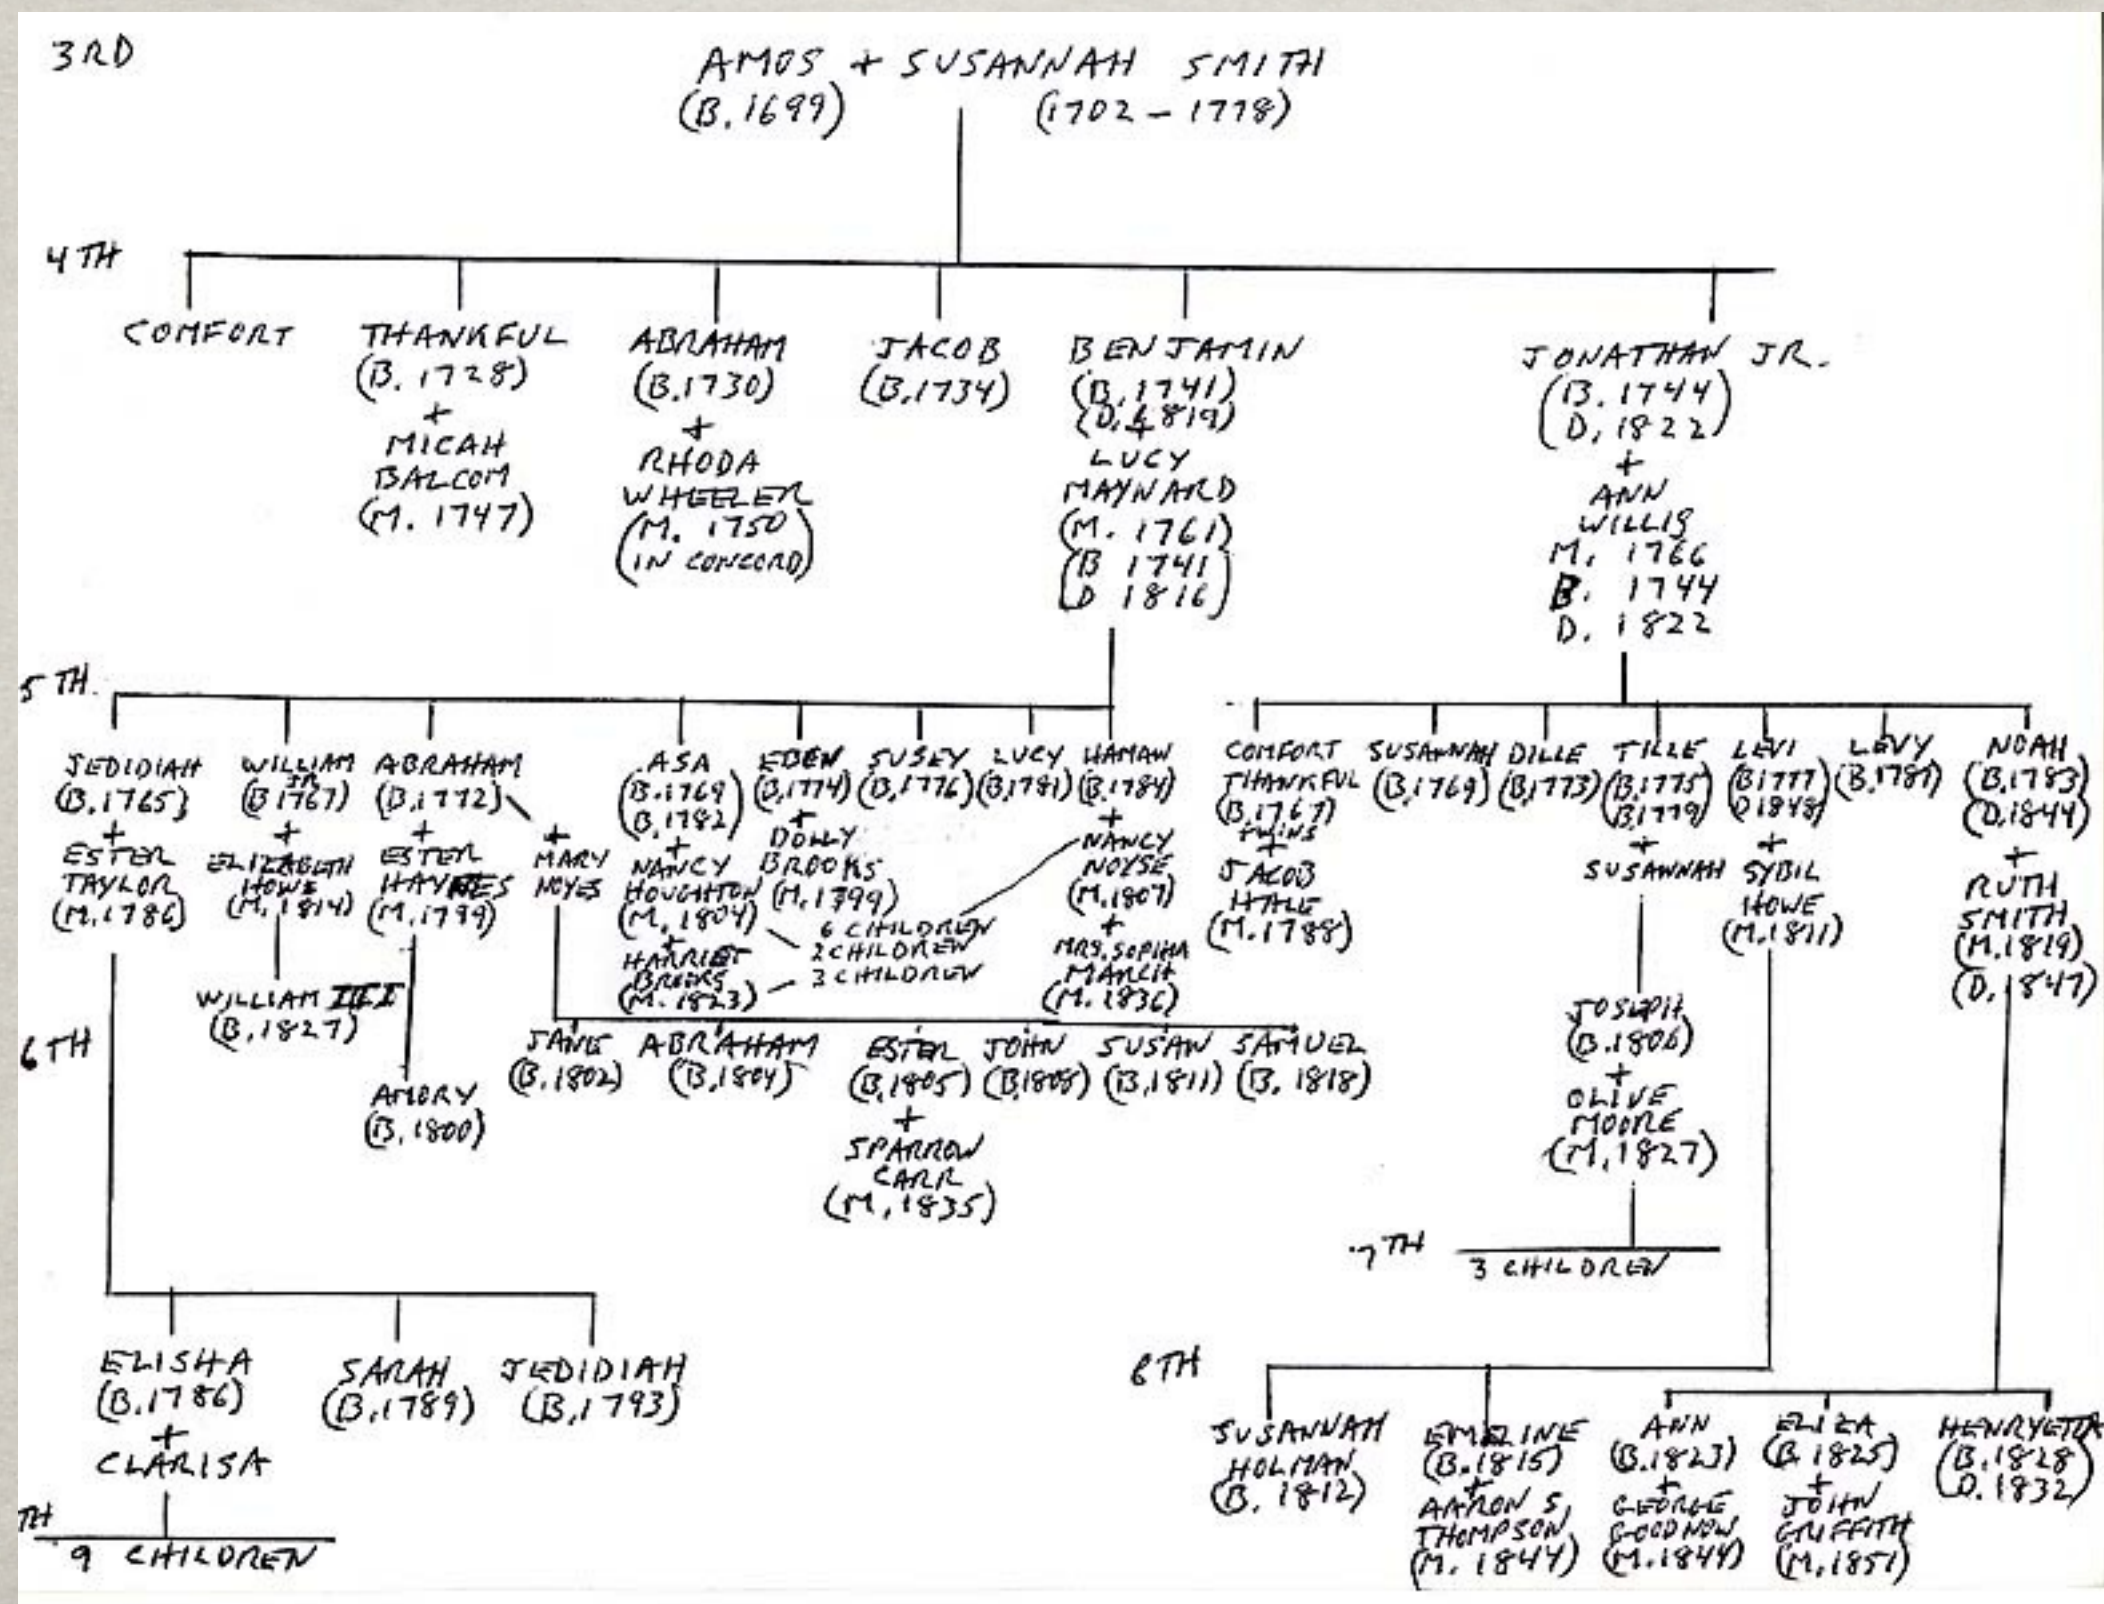 3RD
AMOS + SUSANNAH SMITH
(B. 1699) (1702 - 1778)
4TH
COMFORT
THANKFUL
(B. 1728)
+
MICAH
BALCOM
(M. 1747)
ABRAHAM
(B. 1730)
+
RHODA
WHEELER
(M. 1750
(IN CONCORD)
JACOB
(B. 1734)
BENJAMIN
(B. 1741)
(D. 1819)
+
LUCY
MAYNARD
(M. 1761)
(B 1741
D 1816)
JONATHAN JR.
(B. 1744)
(D. 1822)
+
ANN
WILLIS
M. 1766
B. 1744
D. 1822
5TH.
JEDIDIAH
(B. 1765)
+
ESTER
TAYLOR
(M. 1786)
WILLIAM
JR.
(B 1767)
+
ELIZABETH
HOWE
(M. 1814)
WILLIAM III
(B. 1827)
ABRAHAM
(B. 1772)
+
ESTER
HAYNES
(M. 1799)
+
MARY
NOYES
ASA
(B. 1769
B. 1782)
+
NANCY
HOUGHTON
(M. 1804)
+
HARRIET
BROOKS
(M. 1823)
EBEN
(B. 1774)
+
DOLLY
BROOKS
(M. 1799)
6 CHILDREN
2 CHILDREN
3 CHILDREN
SUSEY
(B. 1776)
LUCY
(B. 1781)
HAMAN
(B. 1784)
+
NANCY
NOYSE
(M. 1807)
+
MRS. SOPIHA
MARCH
(M. 1836)
COMFORT
THANKFUL
(B. 1767)
TWINS
+
JACOB
HALE
(M. 1788)
SUSANNAH
(B. 1769)
DILLE
(B. 1773)
TILLE
(B. 1775)
B. 1779)
+
SUSANNAH
LEVI
(B 1777
D 1848)
+
SYBIL
HOWE
(M. 1811)
LEVY
NOAH
(B. 1783)
(D. 1844)
+
RUTH
SMITH
(M. 1819)
(D. 1847)
6TH
AMORY
(B. 1800)
JANE
(B. 1802)
ABRAHAM
(B. 1804)
ESTER
(B. 1805)
+
SPARROW
CARR
(M. 1835)
JOHN
(B. 1808)
SUSAN
(B. 1811)
SAMUEL
(B. 1818)
JOSEPH
(B. 1806)
+
OLIVE
MOORE
(M. 1827)
7TH
3 CHILDREN
ELISHA
(B. 1786)
+
CLARISA
SARAH
(B. 1789)
JEDIDIAH
(B. 1793)
TH
9 CHILDREN
6TH
SUSANNAH
HOLMAN
(B. 1812)
EMELINE
(B. 1815)
+
AARON S.
THOMPSON
(M. 1844)
ANN
(B. 1823)
+
GEORGE
GOODNOW
(M. 1844)
ELIZA
(B. 1825)
+
JOHN
GRIFFITH
(M. 1851)
HENRYETTA
(B. 1828
D. 1832)